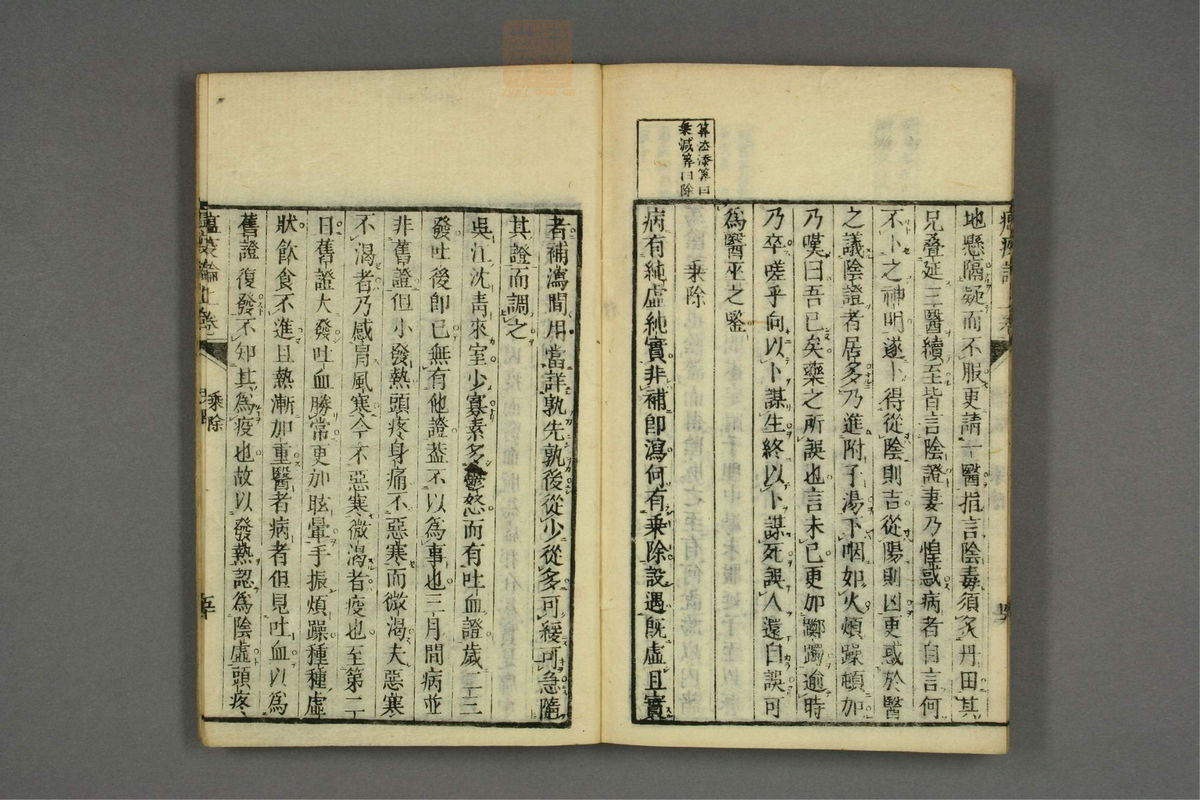 地懸隔疑而不服更請一醫指言陰毒須灸丹田其
兄叠延三醫續至皆言陰證妻乃惶惑病者自言何
不卜之神明遂卜得從陰則吉從陽則凶更惑於醫
之議陰證者居多乃進附子湯下咽如火煩躁頓加
乃嘆曰吾已矣藥之所誤也言未已更加躑躅逾時
乃卒嗟乎向以卜謀生終以卜謀死誤人還自誤可
為醫巫之鑒
乘除
算法添算曰
乘減算曰除
病有純虛純實非補即瀉何有乘除設遇既虛且實
者補瀉間用當詳孰先孰後從少從多可緩可急隨
其證而調之
吳江沈青來室少寡素多鬱怒而有吐血證歲三三
發吐後即已無有他證葢不以為事也三月間病並
非舊證但小發熱頭疼身痛不惡寒而微渴夫惡寒
不渴者乃感冐風寒今不惡寒微渴者疫也至第二
日舊證大發吐血勝常更加眩暈手振煩躁種種虛
狀飲食不進且熱漸加重醫者病者但見吐血以為
舊證復發不知其為疫也故以發熱認為陰虛頭疼
乘除